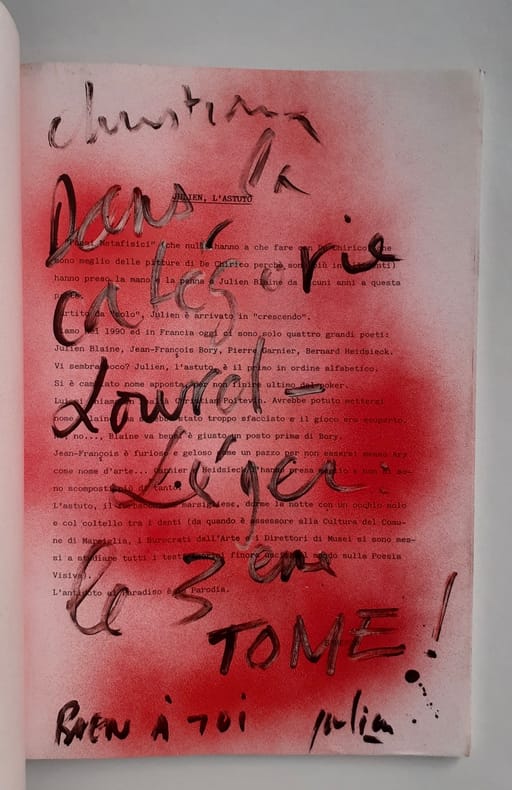 Christian
Dans la
catégorie
Lourd-
Léger
le 3 ème
TOME !
BIEN À TOI Julien
JULIEN, L'ASTUTO
"Poemi Metafisici" (che nulla hanno a che fare con De Chirico, che
sono meglio delle pitture di De Chirico perchè sono più
hanno preso la mano e la penna a Julien Blaine da alcuni anni a questa
Partito da "solo", Julien è arrivato in "crescendo".
Siamo nel 1990 ed in Francia oggi ci sono solo quattro grandi poeti:
Julien Blaine, Jean-François Bory, Pierre Garnier, Bernard Heidsieck.
Vi sembra poco? Julien, l'astuto, è il primo in ordine alfabetico.
Si è cambiato nome apposta per non finire ultimo del poker.
Lui si chiama Christian Poitevin. Avrebbe potuto mettersi
nome Alaine, ma sarebbe stato troppo sfacciato e il gioco era scoperto.
No, no..., Blaine va bene: è giusto un posto prima di Bory.
Jean-François è furioso e geloso come un pazzo per non essersi messo Ary
come nome d'arte... Garnier e Heidsieck l'hanno presa meglio e non si so-
no scomposti più di tanto.
L'astuto, il furbacchione marsigliese, dorme la notte con un occhio solo
e col coltello tra i denti (da quando è assessore alla Cultura del Comu-
ne di Marsiglia, i Burocrati dall'Arte e i Direttori di Musei si sono mes-
si a studiare tutti i testi teorici finora usciti al mondo sulla Poesia
Visiva).
L'antidoto al Paradiso è la Parodia.